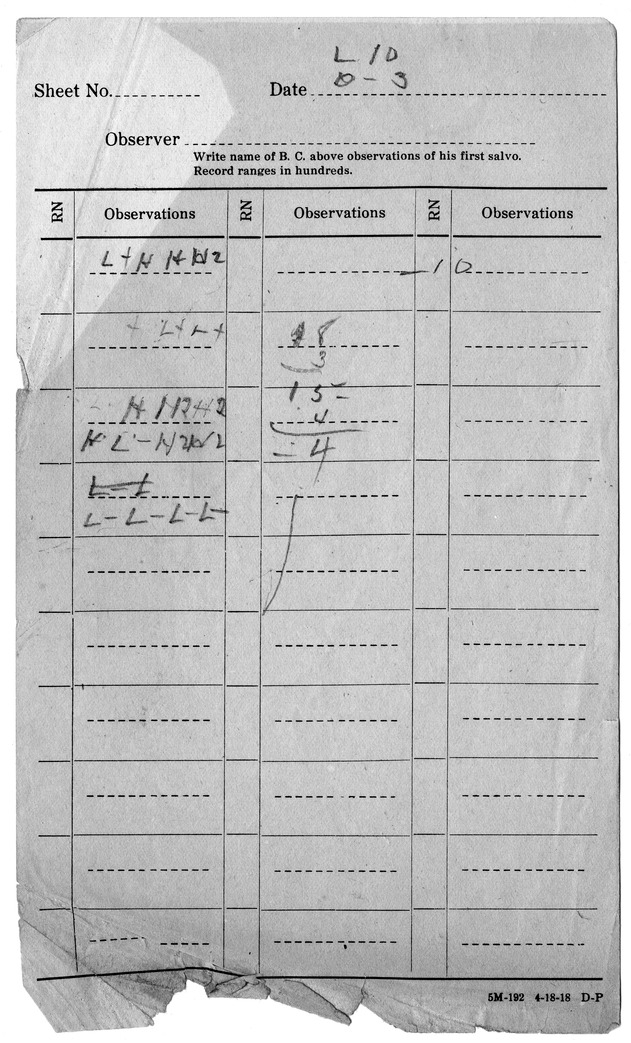 L 10
Sheet No. Date 0 - 3
Observer
Write name of B. C. above observations of his first salvo.
Record ranges in hundreds.
RN Observations RN Observations RN Observations
- 1 0
18
3
15 -
4
- 4
L - L
L - L - L - L -
5M-192 4-18-18 D-P